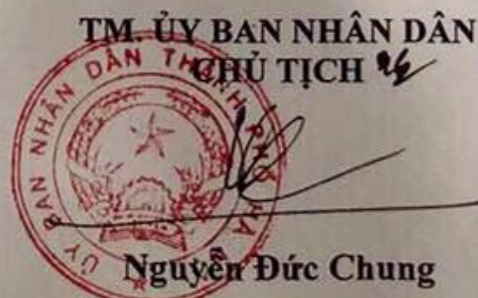 TM. ỦY BAN NHÂN DÂN
CHỦ TỊCH
ỦY BAN NHÂN DÂN THÀNH PHỐ HÀ
Nguyễn Đức Chung